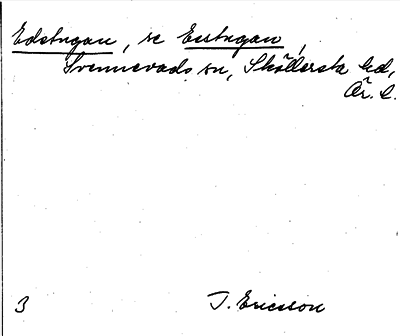 Edstugan, se Esstugan,
Svennevads sn, Sköllersta hd,
Är. l.
3 J. Ericsson